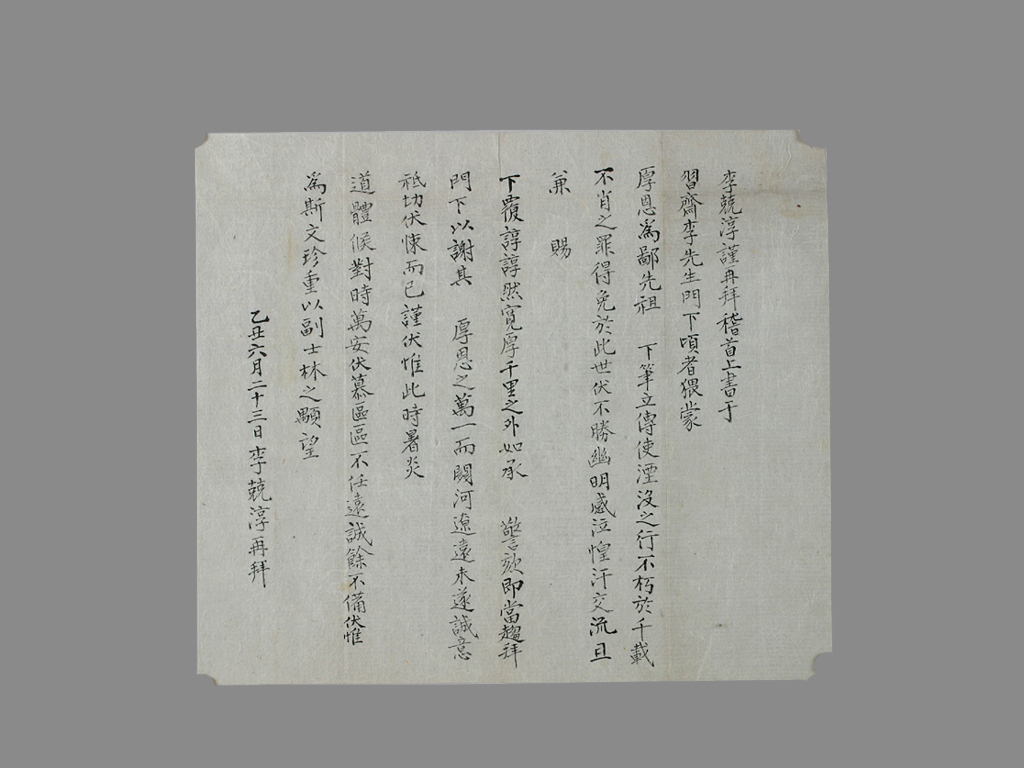 李兢淳謹再拜稽首上書于
習齋李先生門下頃者猥蒙
厚恩爲鄙先祖 下筆立傳使湮沒之行不朽於千載
不肖之罪得免於此世伏不勝幽明感泣惶汗交流且
兼 賜
下覆諄諄然寬厚千里之外如承 警欬即當趨拜
門下以謝其 厚恩之萬一而關河遼遠未遂誠意
祗切伏悚而已謹伏惟此時暑炎
道體候對時萬安伏慕區區不任遠誠餘不備伏惟
爲斯文珍重以副士林之顒望
乙丑六月二十三日李兢淳再拜